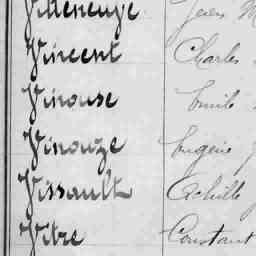 Villeneuve Jules M
Vincent Charles
Vinouse Emile
Vinouze Eugène J
Vissault Achille
Vitre Constant